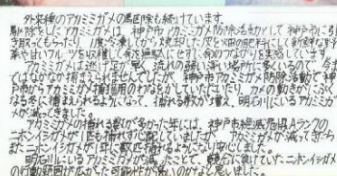 外来種のアカミミガメの駆除も続けています。
駆除したアカミミガメは、神戸市アカミミガメ防除活動として神戸市に引
き取ってもらったり、1度冷凍してから
アカミミガメは逃げ足が速く、流れの弱い深い場所に多くいるので、今ま
ではなかなか捕まえられませんでしたが、神戸市アカミミガメ防除活動で神
戸市からアカミミガメ捕獲用のわなをかしていただいたり、カメの動きがにぶく
なる冬に捕まえられるようになって、捕れる数が増え、明石川にいるアカミミガ
メが減ってきました。
アカミミガメの捕れる数が多かった年には、神戸市絶滅危惧Aランクの
ニホンイシガメが1匹も捕れずに心配していましたが、アカミミガメが減ってきてから
またニホンイシガメが1年に数匹捕れるようになり安心しました。
明石川にいるアカミミガメが減ったことで、隠れていたニホンイシガメ
の行動範囲が広がった可能性が高いのかなと思いました。